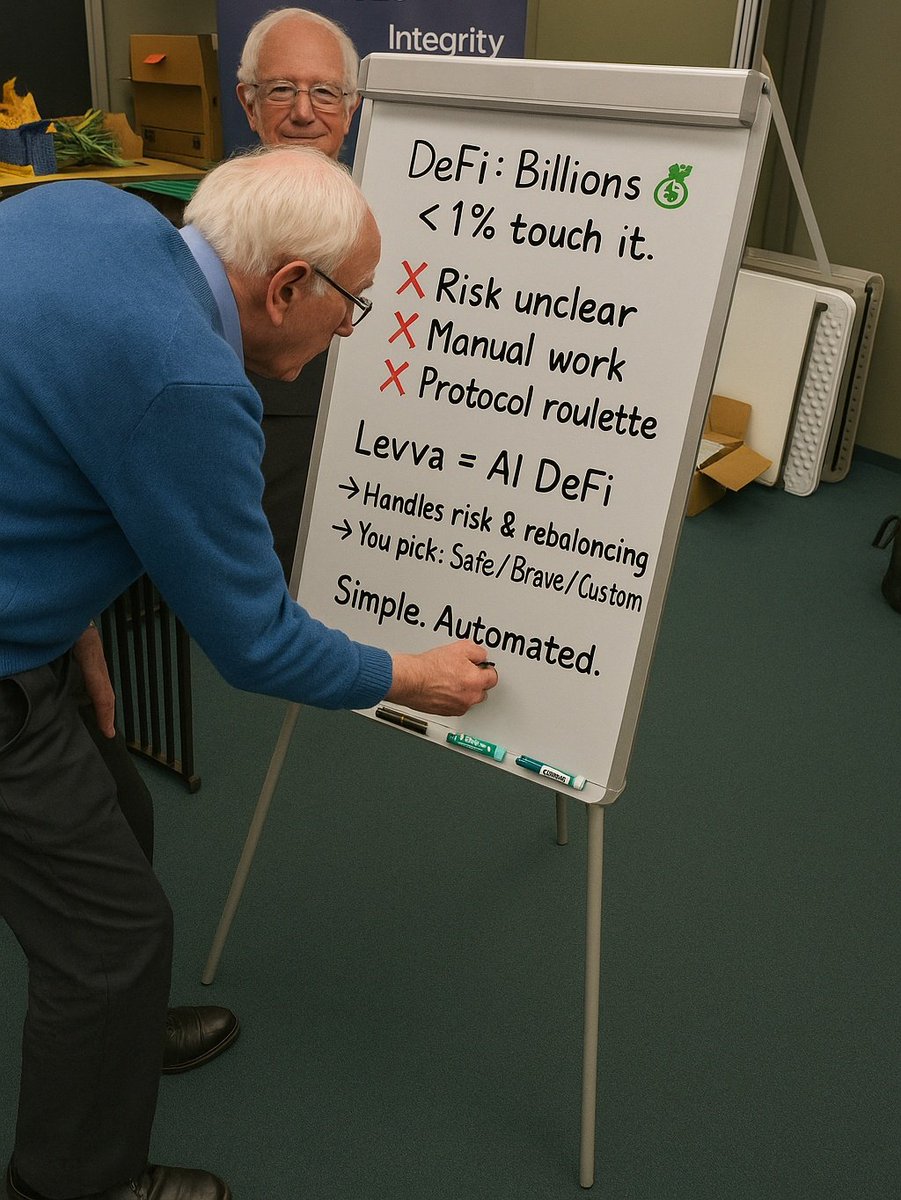 Integrity
DeFi: Billions
< 1% touch it.
X Risk unclear
X Manual work
X Protocol roulette
Levva = AI DeFi
→ Handles risk & rebaloncing
→ You pick: Safe/Brave/Custom
Simple. Automated.